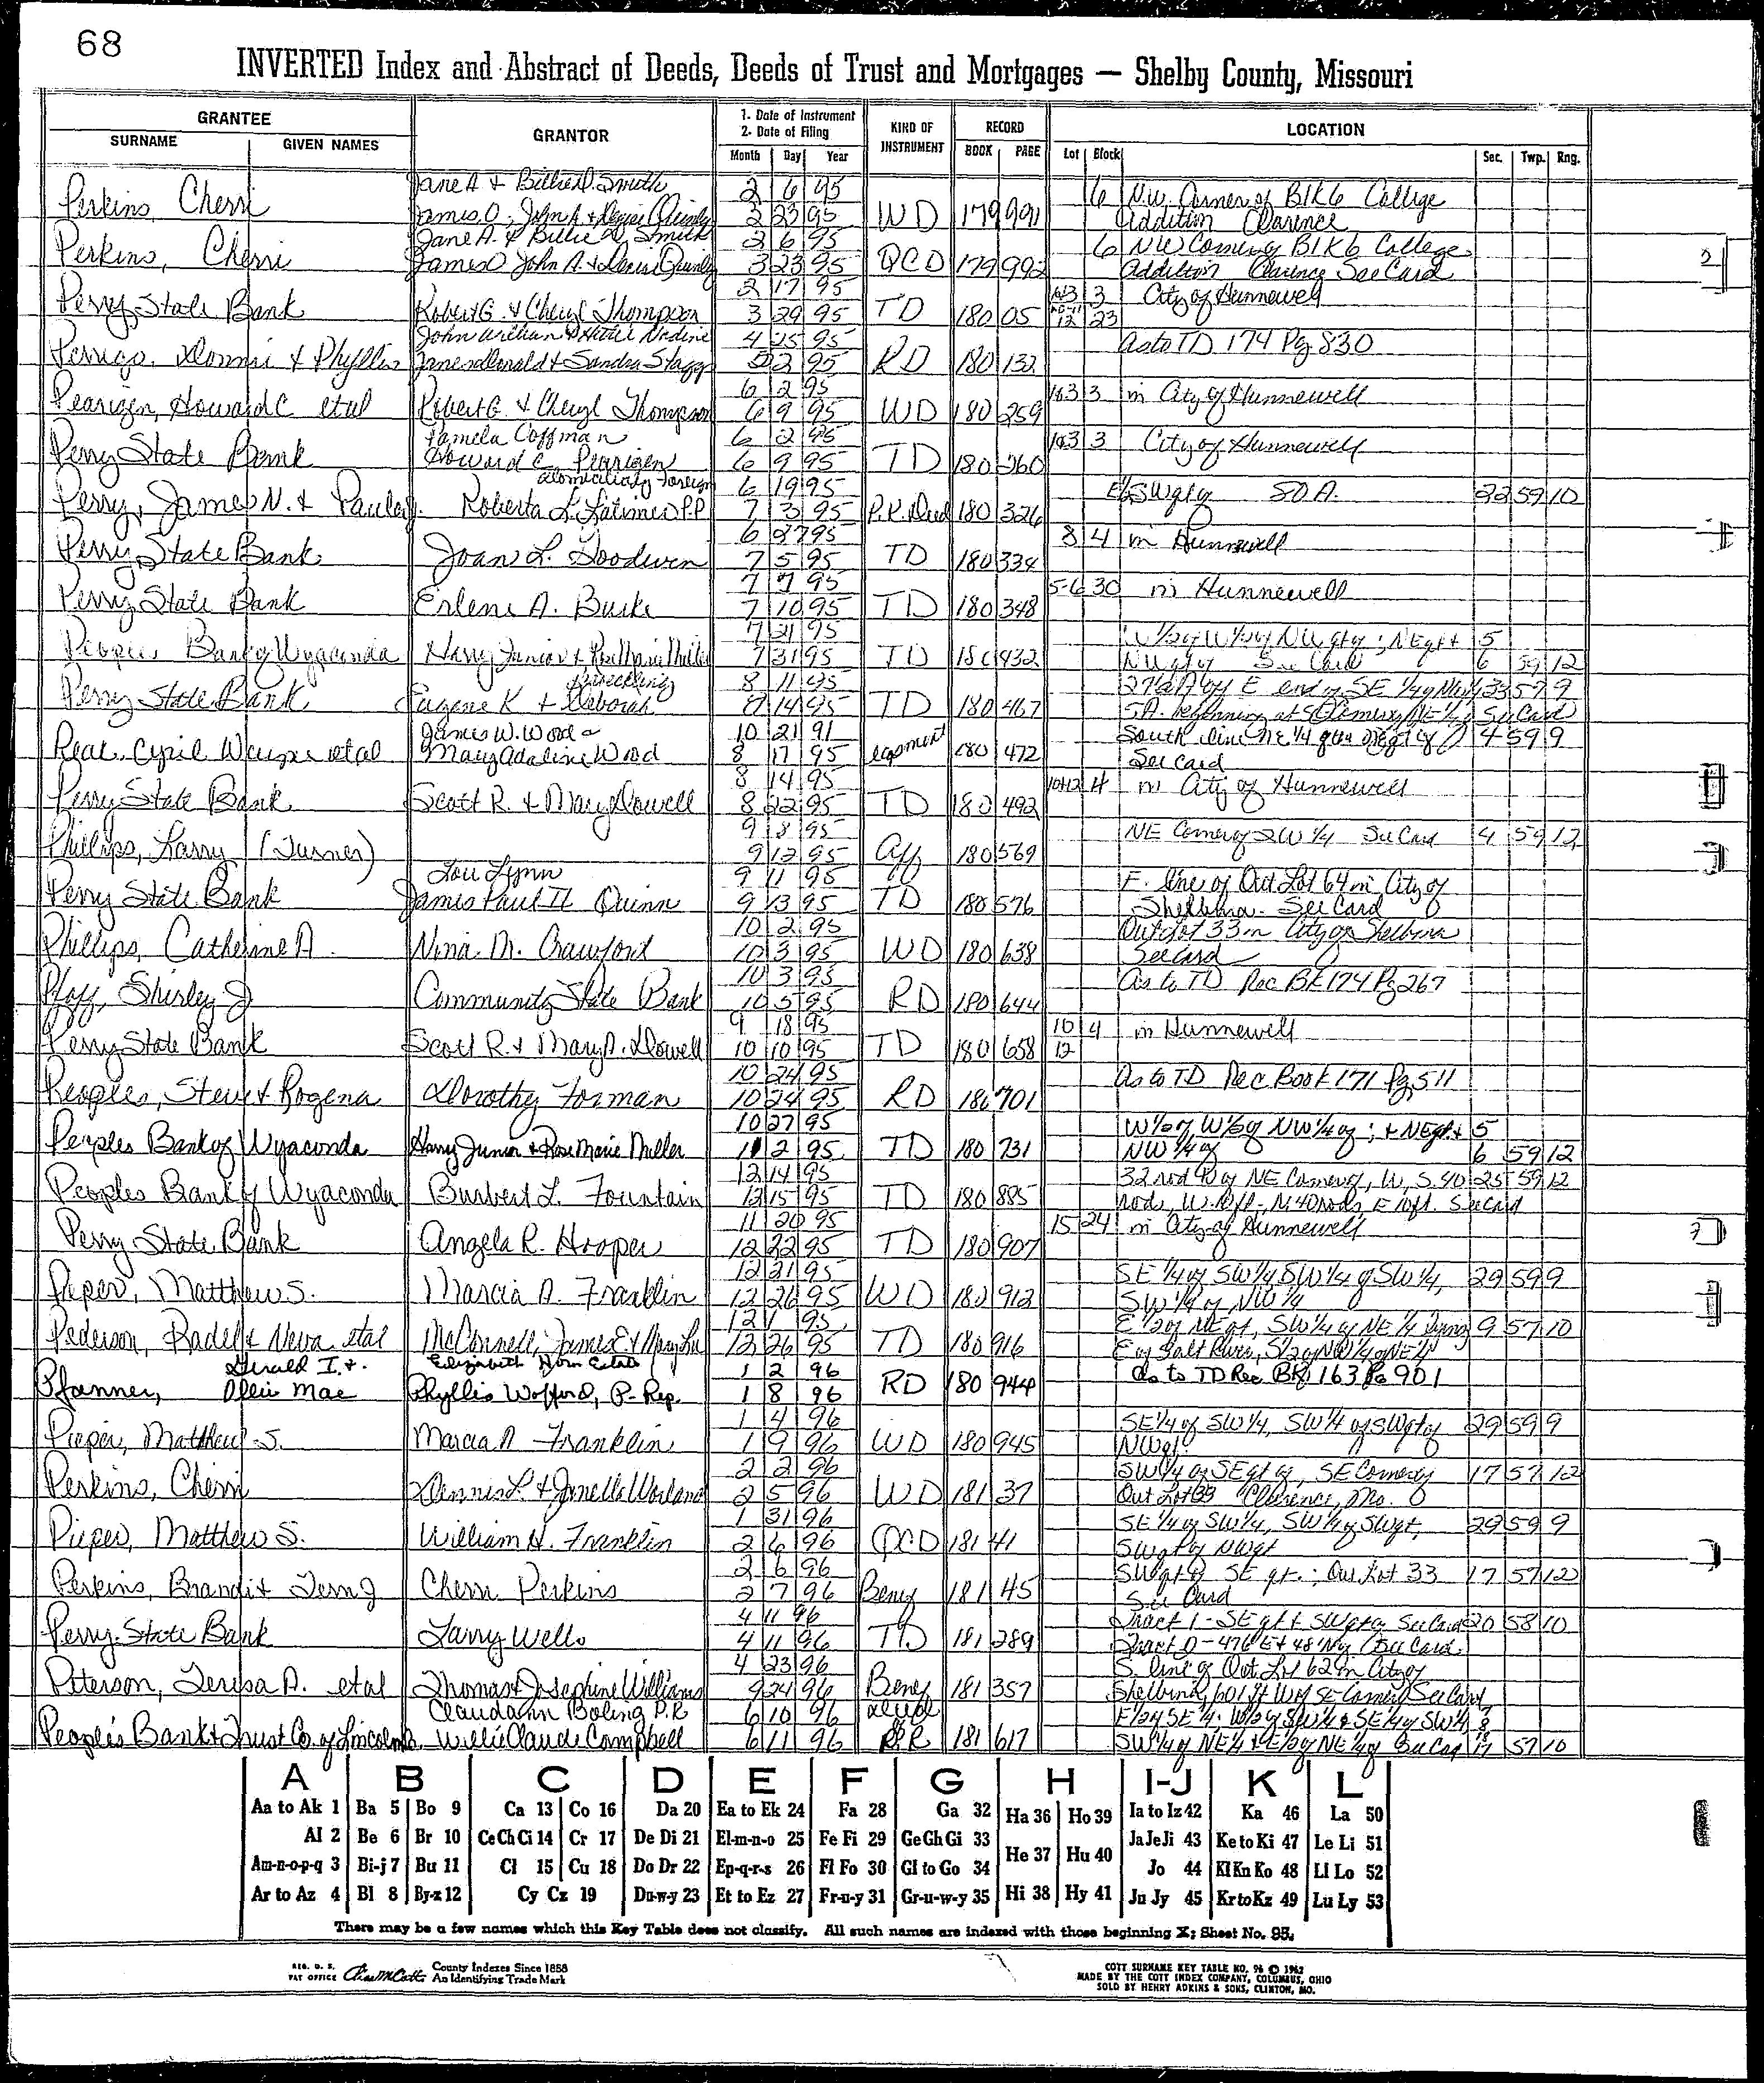 68
INVERTED Index and Abstract of Deeds, Deeds of Trust and Mortgages — Shelby County, Missouri
GRANTEE
SURNAME GIVEN NAMES
GRANTOR
1. Date of Instrument
2. Date of Filing
Month Day Year
KIND OF INSTRUMENT
RECORD
BOOK PAGE
LOCATION
Lot Block Sec. Twp. Rng.
Jane A & Billie D. Smith 2 6 95 6 N.W. Corner of Blk 6 College
Perkins, Cherri James O, John A & Denise Quinly 2 23 95 WD 179 991 Addition Clarence
Jane A. & Billie D. Smith 2 6 95 6 NW Corner of Blk 6 College
Perkins, Cherri James O John A. & Denise Quinly 3 23 95 QCD 179 992 Addition Clarence See Card
2 17 95 3 City of Hunnewell
Perry State Bank Robert G. & Cheryl Thompson 3 29 95 TD 180 05 12 23
John William & Hattie Nadine 4 25 95 As to TD 174 Pg 830
Perrigo, Donnie & Phyllis James Donald & Sandra Stagg 5 2 95 RD 180 132
6 2 95 1&3 3 in City of Hunnewell
Pearigen, Howard C etal Robert G. & Cheryl Thompson 6 9 95 WD 180 259
Pamela Coffman 6 2 95 1&3 3 City of Hunnewell
Perry State Bank Howard C. Pearigen 6 9 95 TD 180 260
6 19 95 SW qt of 80 A. 22 59 10
Perry, James N. & Paula J. Roberta L. Latimer P.P. 7 3 95 P.R. Deed 180 326
6 27 95 8 4 in Hunnewell
Perry State Bank Joan L. Goodwin 7 5 95 TD 180 334
7 7 95 5-6 30 in Hunnewell
Perry State Bank Erlene A. Burke 7 10 95 TD 180 348
7 21 95 W 1/2 of W 1/2 of NW qt of; NE qt & 5
Peoples Bank of Wyaconda Harry Junior & Rose Marie Miller 7 31 95 TD 180 432 NW qt of See Card 6 59 12
8 11 95 33 57 9
Perry State Bank Eugene K & Deborah 8 14 95 TD 180 467 See Card
James W. Wood 10 21 91 South line NE 1/4 4 59 9
Real, Cyril Wayne etal Mary Adaline Wood 8 17 95 easment 180 472 See Card
8 14 95 10&12 4 in City of Hunnewell
Perry State Bank Scott R. & Mary Dowell 8 22 95 TD 180 492
9 8 95 NE Corner of SW 1/4 See Card 4 59 12
Phillips, Larry (Turner) 9 12 95 Aff 180 569
Lou Lynn 9 11 95 E. line of Out Lot 64 in City of
Perry State Bank James Paul II Quinn 9 13 95 TD 180 576 Shelbina. See Card
10 2 95 Out Lot 33 in City of Shelbina
Phillips, Catherine A. Nina M. Crawford 10 3 95 WD 180 638 See Card
10 3 95 As to TD Rec Bk 174 Pg 267
Pfaff, Shirley J Community State Bank 10 5 95 RD 180 644
9 18 95 10 4 in Hunnewell
Perry State Bank Scott R. & Mary A. Dowell 10 10 95 TD 180 658 12
10 24 95 As to TD Rec Book 171 Pg 511
Peoples, Steve & Rogena Dorothy Forman 10 24 95 RD 180 701
10 27 95 W 1/2 of W 1/2 of NW 1/4 of; & NE qt & 5
Peoples Bank of Wyaconda Harry Junior & Rose Marie Miller 11 2 95 TD 180 731 NW 1/4 of 6 59 12
12 14 95 32 rod W of NE Corner of, W, S. 40 25 59 12
Peoples Bank of Wyaconda Burbert L. Fountain 12 15 95 TD 180 885 rods, W. 10 ft, N 40 rods, E 10 ft. See Card
11 20 95 15 24 in City of Hunnewell
Perry State Bank Angela R. Hooper 12 22 95 TD 180 907
12 21 95 SE 1/4 of SW 1/4 SW 1/4 of SW 1/4, 29 59 9
Pieper, Matthew S. Marcia A. Franklin 12 26 95 WD 180 912 SW 1/4 of NW 1/4
12 1 95 E 1/2 of NE qt, SW 1/4 of NE 1/4 lying 9 57 10
Pederson, Radell & Neva etal McConnell, James E & Mary Lee 12 26 95 TD 180 916 E of Salt River, S 1/2 of NW 1/4 of NE 1/4
Gerald I. & Elizabeth Horn Estate 1 2 96 As to TD Rec Bk 163 Pg 901
Pfanner, Ollie Mae Phyllis Wofford, P. Rep. 1 8 96 RD 180 944
1 4 96 SE 1/4 of SW 1/4, SW 1/4 of SW qt of 29 59 9
Pieper, Matthew S. Marcia A Franklin 1 9 96 WD 180 945 NW qt
2 2 96 SW 1/4 of SE qt of, SE Corner of 17 57 12
Perkins, Cherri Dennis L. & Jonell Worland 2 5 96 WD 181 37 Out Lot 33 Clarence, Mo.
1 31 96 SE 1/4 of SW 1/4, SW 1/4 of SW qt, 29 59 9
Pieper, Matthew S. William H. Franklin 2 6 96 QCD 181 41 SW qt of NW qt
2 6 96 SW qt of SE qt.; Out Lot 33 17 57 12
Perkins, Brandi & Terry J Cherri Perkins 2 7 96 Beny 181 45 See Card
4 11 96 Tract 1 - SE qt & SW qt of See Card 20 58 10
Perry State Bank Larry Wells 4 11 96 TD 181 289 See Card
4 23 96 S. line of Out Lot 62 in City of
Peterson, Teresa A. etal Thomas & Josephine Williams 9 24 96 Beny 181 357 Shelbina, 60 ft W of SE Corner of See Card
Claudann Boling P.R 6 10 96 deed E 1/2 of SE 1/4; W 1/2 of SW 1/4 & SE 1/4 of SW 1/4 8
People's Bank & Trust Co. of Lincoln Willie Claude Campbell 6 11 96 P.R 181 617 SW 1/4 of NE 1/4 & E 1/2 of NE 1/4 of See Card 17 57 10
A B C D E F G H I-J K L
Aa to Ak 1 Ba 5 Bo 9 Ca 13 Co 16 Da 20 Ea to Ek 24 Fa 28 Ga 32 Ha 36 Ho 39 Ia to Iz 42 Ka 46 La 50
Al 2 Be 6 Br 10 Ce Ch Ci 14 Cr 17 De Di 21 El-m-n-o 25 Fe Fi 29 Ge Gh Gi 33 He 37 Hu 40 Ja Je Ji 43 Ke to Ki 47 Le Li 51
Am-n-o-p-q 3 Bi-j 7 Bu 11 Cl 15 Cu 18 Do Dr 22 Ep-q-r-s 26 Fl Fo 30 Gl to Go 34 Jo 44 Kl Kn Ko 48 Ll Lo 52
Ar to Az 4 Bl 8 By-z 12 Cy Cz 19 Du-w-y 23 Et to Ez 27 Fr-u-y 31 Gr-u-w-y 35 Hi 38 Hy 41 Ju Jy 45 Kr to Kz 49 Lu Ly 53
There may be a few names which this Key Table does not classify. All such names are indexed with those beginning X; Sheet No. 95.
REG. U. S. PAT OFFICE County Indexes Since 1888
An Identifying Trade Mark
COTT SURNAME KEY TABLE NO. 96 © 1962
MADE BY THE COTT INDEX COMPANY, COLUMBUS, OHIO
SOLD BY HENRY ADKINS & SONS, CLINTON, MO.